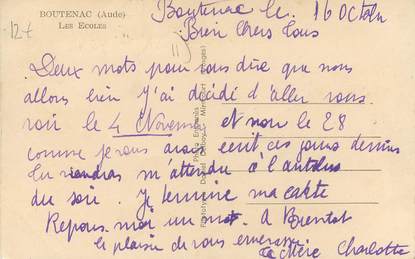 BOUTENAC (Aude)
LES ECOLES
Boutenac le. 16 Octobr
Bien Chers Tous
Deux mots pour vous dire que nous
allons bien J'ai décidé d'aller vous
voir le 4 Novembre et non le 28
comme je vous avais ecrit ces jours derniers
tu viendras m'attendre à l'autobus
du soir. Je termine ma carte
Repons moi un mot. A Bientot
le plaisir de vous
ta Mère Charlotte